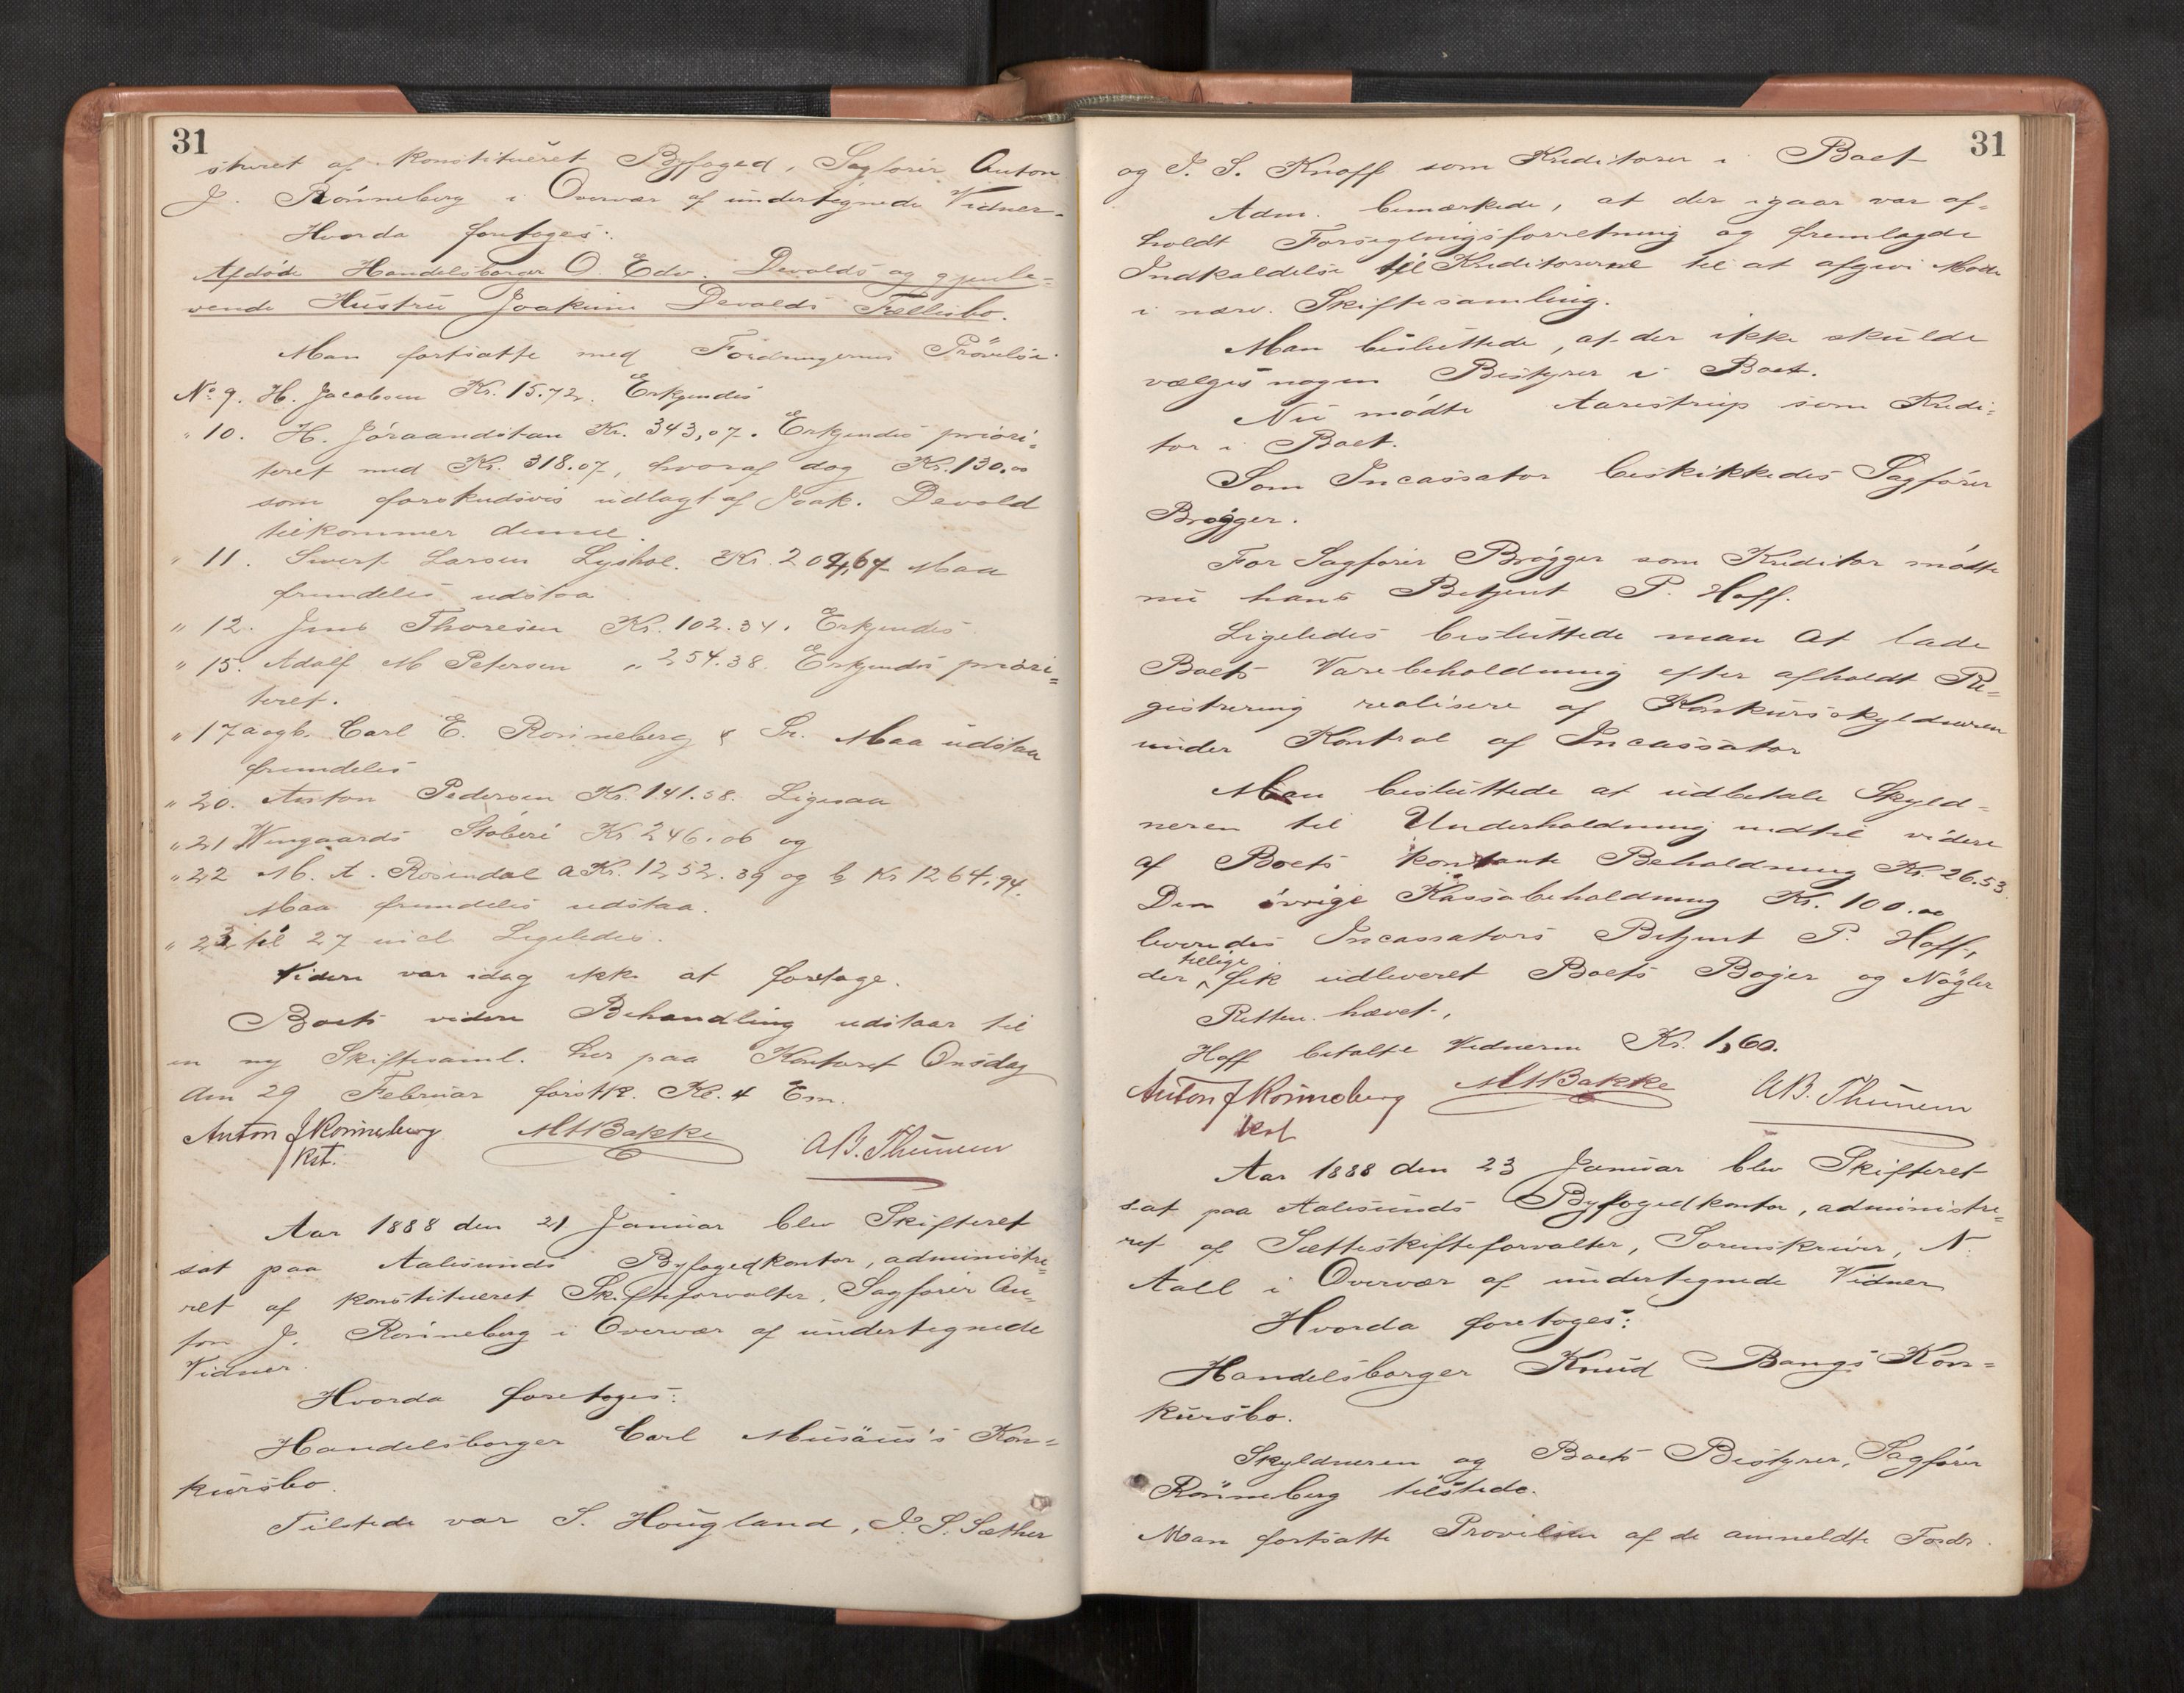 31
styret af konstitueret Byfoged, Sagfører Anton
J. Rönneberg i Overvær af undertegnede Vidner.
Hvorda foretoges:
Afdöde Handelsborger O. Edv. Devolds og gjenle-
vende Hustru Joakime Devolds Fællesbo.
Man fortsatte med Fordringernes Prövelse.
No 9. H. Jacobsen Kr. 15.72. Erkjendes
" 10. H. Jöraandstau Kr. 343,07. Erkjendes priori-
teret med Kr. 318.07, hvoraf dog Kr. 130.00
som forskudsvis udlagt af Joak. Devold
tilkommer denne.
" 11. Sivert Larsen Lyshol. Kr. 204,67 Maa
fremdeles udstaa
" 12. Jens Thoresen Kr. 102.34. Erkjendes
" 15. Adolf M Petersen " 254.38. Erkjendes priori=
teret.
" 17 a og b. Carl E. Rönneberg & Sr. Maa udstaa
fremdeles
" 20. Anton Pedersen Kr. 141.58. Ligesaa
" 21 Wingaards Stöberi Kr 246.06 og
" 22 M. A. Rosendal a Kr. 1252.39 og b Kr 1264,94.
Maa fremdeles udstaa.
" 23 til 27 incl. Ligeledes.
Videre var idag ikke at foretage.
Boets videre Behandling udstaar til
en ny Skiftesaml. her paa Kontoret Onsdag
den 29 Februar förstk. Kl. 4 Em.
Anton J Rönneberg MABakke A B. Thunem
kst.
Aar 1888 den 21 Januar blev Skifteret
sat paa Aalesunds Byfogedkontor, administre=
ret af konstitueret Skifteforvalter, Sagförer An=
ton J. Rönneberg i Overvær af undertegnede
Vidner.
Hvorda foretoges:
Handelsborger Carl Musäus's Kon=
kursbo.
Tilstede var S. Hougland, J. S. Sæther
31
og J. S. Knoff som Kreditorer i Boet
Adm. bemærkede, at der igaar var af=
holdt Forseglingsforretning og fremlagde
Indkaldelse til Kreditorerne til at afgive Möde
i nærv. Skiftesamling.
Man besluttede, at der ikke skulde
vælges nogen Bestyrer i Boet.
Nu mödte Aarestrup som Kredi=
tor i Boet.
Som Incassator beskikkedes Sagförer
Brögger.
For Sagförer Brögger som Kreditor mödte
nu hans Betjent P. Hoff.
Ligeledes besluttede man at lade
Boets Varebeholdning efter afholdt Re=
gistrering realisere af Konkursskyldneren
under Kontrol af Incassator
Man besluttede at udbetale Skyld=
neren til Underholdning indtil videre
af Boets kontante Beholdning Kr. 26.53
Den övrige Kassabeholdning Kr. 100.00
leveredes Incassators Betjent P. Hoff,
tillige
der fik udleveret Boets Böger og Nögler
Retten hævet.
Hoff betalte Vidnerne Kr. 1,60.
Anton J Rönneberg MABakke A B. Thunem
kst
Aar 1888 den 23 Januar blev Skifteret
sat paa Aalesunds Byfogedkontor, administre=
ret af Sætteskifteforvalter, Sorenskriver, N.
Aall i Overvær af undertegnede Vidner
Hvorda foretoges:
Handelsborger Knud Bangs Kon=
kursbo.
Skyldneren og Boets Bestyrer, Sagförer
Rönneberg tilstede.
Man fortsatte Prövelsen af de anmeldte Fordr.